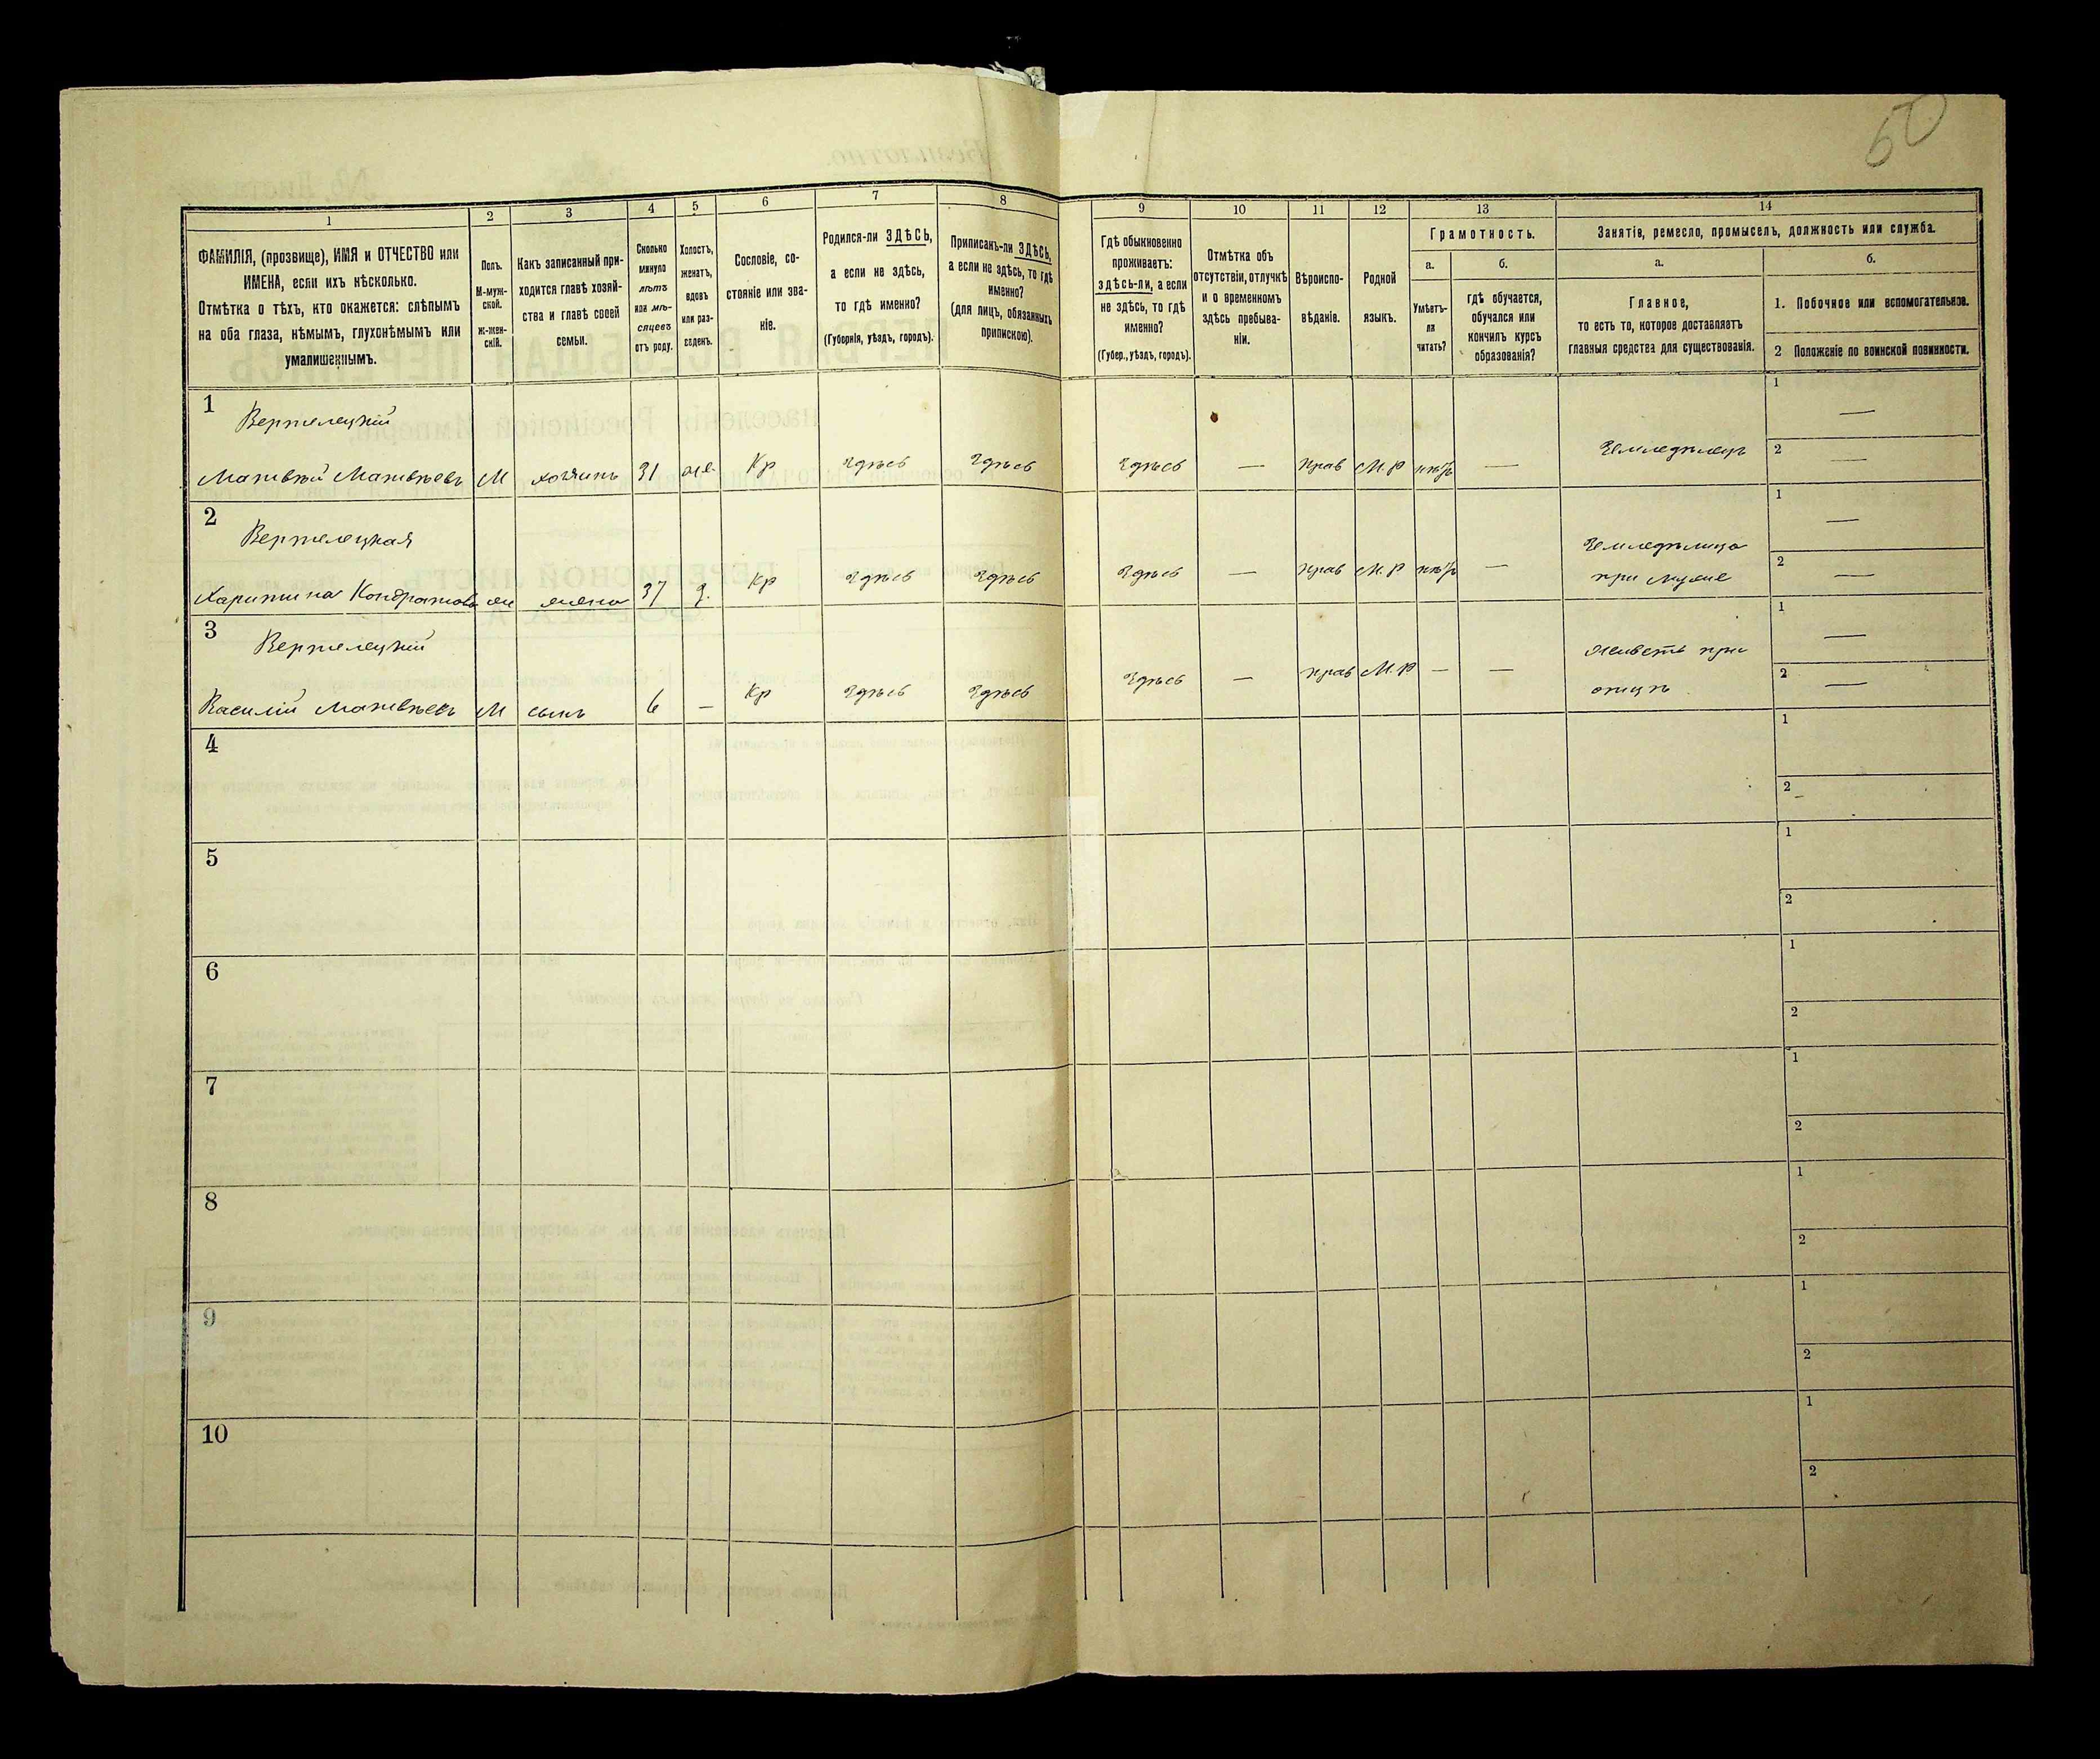 50
1
2
3
4
5
6
7
8
9
10
11
12
13
14
ФАМИЛІЯ, (прозвище), ИМЯ и ОТЧЕСТВО или
ИМЕНА, если ихъ нѣсколько.
Отмѣтка о тѣхъ, кто окажется: слѣпымъ
на оба глаза, нѣмымъ, глухонѣмымъ или
умалишеннымъ.
Полъ.
М-муж-
ской.
ж-жен-
скій.
Какъ записанный при-
ходится главѣ хозяй-
ства и главѣ своей
семьи.
Сколько
минуло
лѣтъ
или мѣ-
сяцевъ
отъ роду.
Холостъ,
женатъ,
вдовъ
или раз-
веденъ.
Сословіе, со-
стояніе или зва-
ніе.
Родился-ли ЗДѢСЬ,
а если не здѣсь,
то гдѣ именно?
(Губернія, уѣздъ, городъ).
Приписанъ-ли ЗДѢСЬ,
а если не здѣсь, то гдѣ
именно?
(для лицъ, обязанныхъ
припискою).
Гдѣ обыкновенно
проживаетъ:
здѣсь-ли, а если
не здѣсь, то гдѣ
именно?
(Губер., уѣздъ, городъ).
Отмѣтка объ
отсутствіи, отлучкѣ
и о временномъ
здѣсь пребыва-
ніи.
Вѣроиспо-
вѣданіе.
Родной
языкъ.
Грамотность.
а.
Умѣетъ-
ли
читать?
б.
гдѣ обучается,
обучался или
кончилъ курсъ
образованія?
Занятіе, ремесло, промыселъ, должность или служба.
а.
Главное,
то есть то, которое доставляетъ
главныя средства для существованія.
б.
1. Побочное или вспомогательное.
2 Положеніе по воинской повинности.
1
Вертелецкій
Матвѣй Матвѣевъ М хозяинъ 31 же Кр Здѣсь Здѣсь Здѣсь — прав М.Р нѣтъ — Земледѣлецъ 1 — 2 —
2
Вертелецкая
Харитина Кондратова ж жена 37 з. Кр Здѣсь Здѣсь Здѣсь — прав М.Р нѣтъ — Земледѣлица
при мужѣ 1 — 2 —
3
Вертелецкій
Василій Матвѣевъ М сынъ 6 — Кр Здѣсь Здѣсь Здѣсь — прав М.Р — — Живетъ при
отцѣ 1 — 2 —
4 1 2
5 1 2
6 1 2
7 1 2
8 1 2
9 1 2
10 1 2